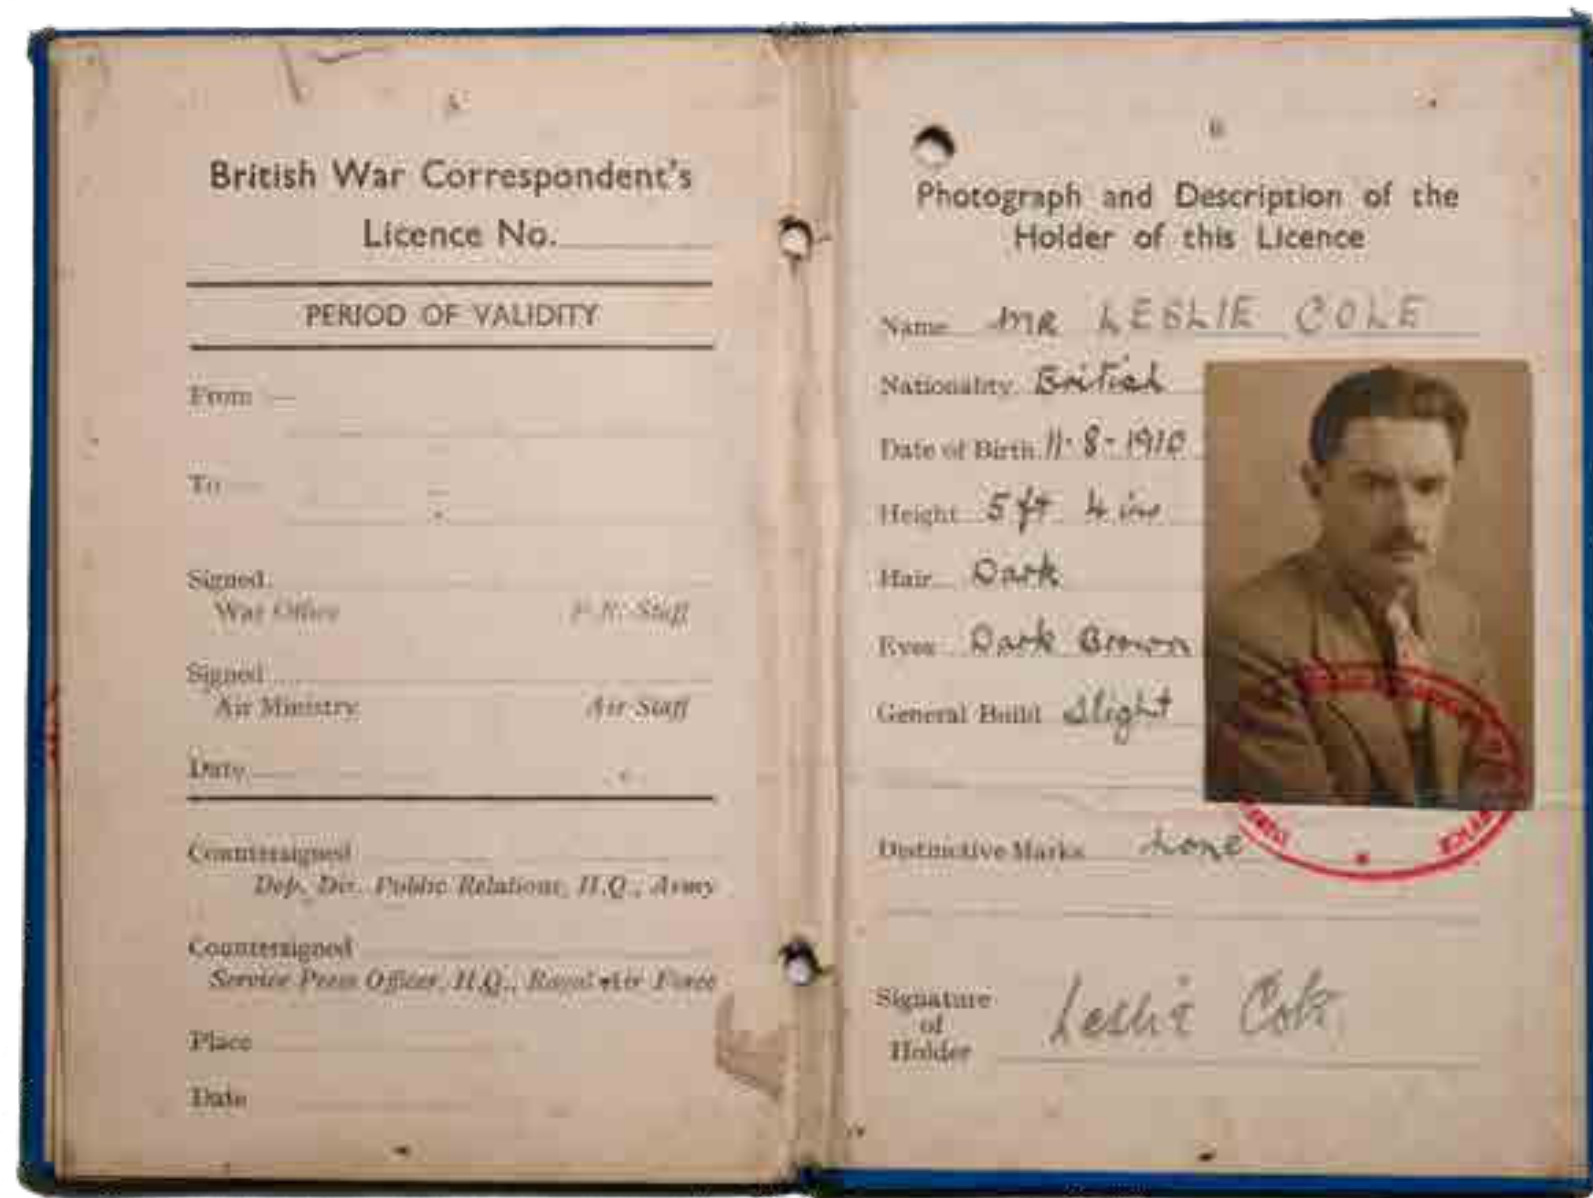 British War Correspondent's
Licence No.
PERIOD OF VALIDITY
From
To
Signed
War Office P.R. Staff
Signed
Air Ministry Air Staff
Date
Countersigned
Dep. Dir. Public Relations, H.Q., Army
Countersigned
Service Press Officer, H.Q., Royal Air Force
Place
Date
Photograph and Description of the
Holder of this Licence
Name MR LESLIE COLE
Nationality British
Date of Birth 11-8-1910
Height 5 ft 4 ins
Hair Dark
Eyes Dark Brown
General Build Slight
Distinctive Marks
Signature
of
Holder
Leslie Cole